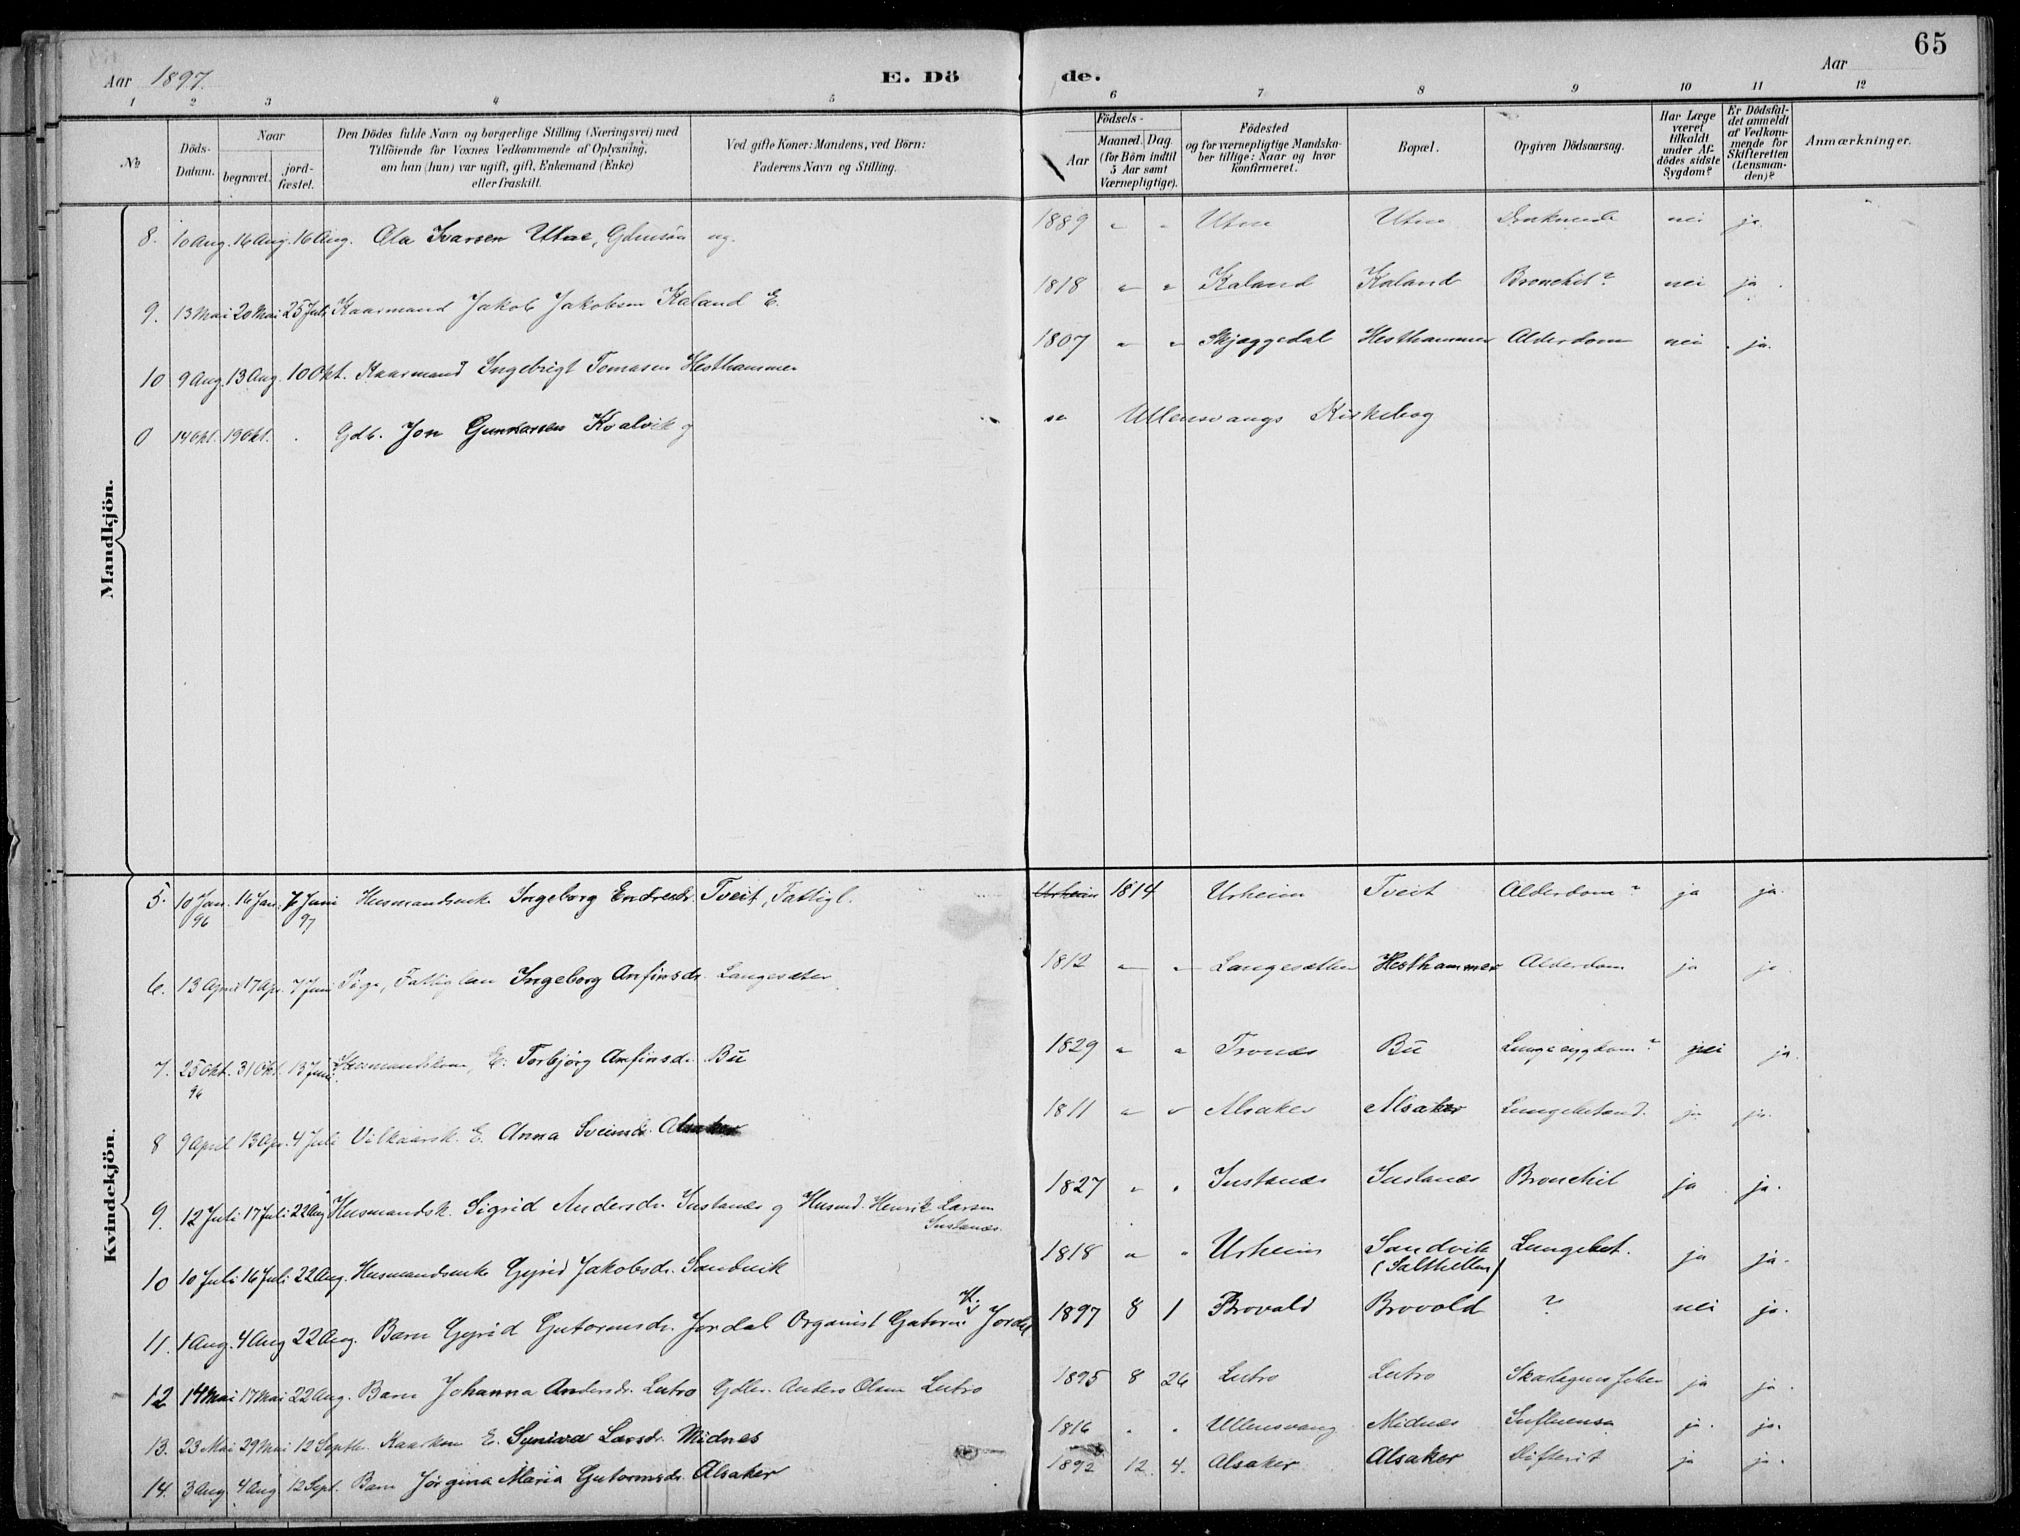 65
Aar 1897. E. Dö de. Aar
1 2 3 4 5 6 7 8 9 10 11 12
No
Döds-Datum.
Naar
begravet.
jord-fæstet.
Den Dödes fulde Navn og borgerlige Stilling (Næringsvei) med
Tilföiende for Voxnes Vedkommende af Oplysning,
om han (hun) var ugift, gift, Enkemand (Enke)
eller fraskilt.
Ved gifte Koner: Mandens, ved Börn:
Faderens Navn og Stilling.
Födsels-
Aar
Maaned. Dag.
(for Börn indtil
5 Aar samt
Værnepligtige).
Födested
og for værnepligtige Mandska-
ber tillige: Naar og hvor
konfirmeret.
Bopæl.
Opgiven Dödsaarsag.
Har Læge
været
tilkaldt
under Af-
dödes sidste
Sygdom?
Er Dödsfal-
det anmeldt
af Vedkom-
mende for
Skifteretten
(Lensman-
den)?
Anmærkninger.
Mandkjön.
8. 10 Aug. 16 Aug. 16 Aug. Ola Ivarsen Utne, ug. 1889 " " Utne Utne Druknede nei ja.
9. 13 Mai 20 Mai 25 Juli Kaarmand Jakob Jakobsen Kaland E. 1818 " " Kaland Kaland Bronchit? nei ja.
10 9 Aug. 13 Aug. 10 Okt. Kaarmand Ingebrigt Tomasen Hesthammer 1807 " " Skjæggedal Hesthammer Alderdom nei ja.
0 14 Okt. 19 Okt. Gdb. Jon Gunnarsen Kvalvik g se Ullensvangs Kirkebog
Kvindekjön.
5. 10 Jan. 96 16 Jan. 7 Juni 97 Husmandsenke Ingeborg Endresdr. Tveit, Fattigl. Urheim 1814 Urheim Tveit Alderdom? ja ja.
6. 13 April 17 Apr. 7 Juni Pige, Fattiglem Ingeborg Anfinsdr. Langesæter 1812 " " Langesætter Hesthammer Alderdom ja ja.
7. 25 Okt. 96 31 Okt. 13 Juni Husmandskone, E. Torbjørg Anfinsdr. Bu 1829 " " Tronæs Bu Lungesygdom? nei ja.
8 9 April 13 Apr. 4 Juli Vilkaarsk. E. Anna Sveinsdr. Alsaker 1811 " " Alsaker Alsaker Lungebetænd. ja ja.
9. 12 Juli 17 Juli 22 Aug Husmandsk. Sigrid Andersdr. Instanæs g Husmd. Henrik Larsen
Instanæs. 1827 " " Instanæs Instanæs Bronchit ja ja.
10 10 Juli 16 Juli 22 Aug. Husmandsenke Gyrid Jakobsdr. Sandvik 1818 " " Urheim Sandvik
(Salthellen) Lungebet. ja ja.
11. 1 Aug. 4 Aug 22 Aug. Barn Gyrid Gutormsdr. Jordal Organist Gutorm H. Jordal 1897 8 1 Brovold Brovold ? nei ja.
12 14 Mai 17 Mai 22 Aug. Barn Johanna Andersdr. Lutro Gdbr. Anders Olsen Lutro 1895 8 26 Lutro Lutro Skarlagensfeber ja ja.
13. 23 Mai 29 Mai 12 Septbr. Kaarkone E. Synieva Larsdr. Midnes 1816 " " Ullensvang Midnæs Influensa ja. ja.
14. 3 Aug 4 Aug 12 Sept. Barn Jørgina Maria Gutormsdr. Alsaker 1892 12. 4. Alsaker Alsaker Difterit ja ja.